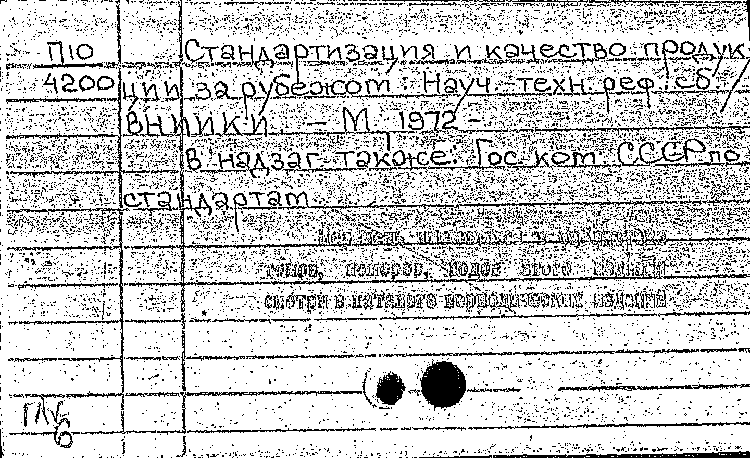 П10 Стандартизация и качество продук-
4200 ции за рубежом: Науч.-техн. реф. сб. /
ВНИИКИ. - М. 1972 -
В надзаг. также: Гос. ком. СССР по
стандартам.
томов, номеров, годов этого издания
смотри в каталоге периодических изданий
6